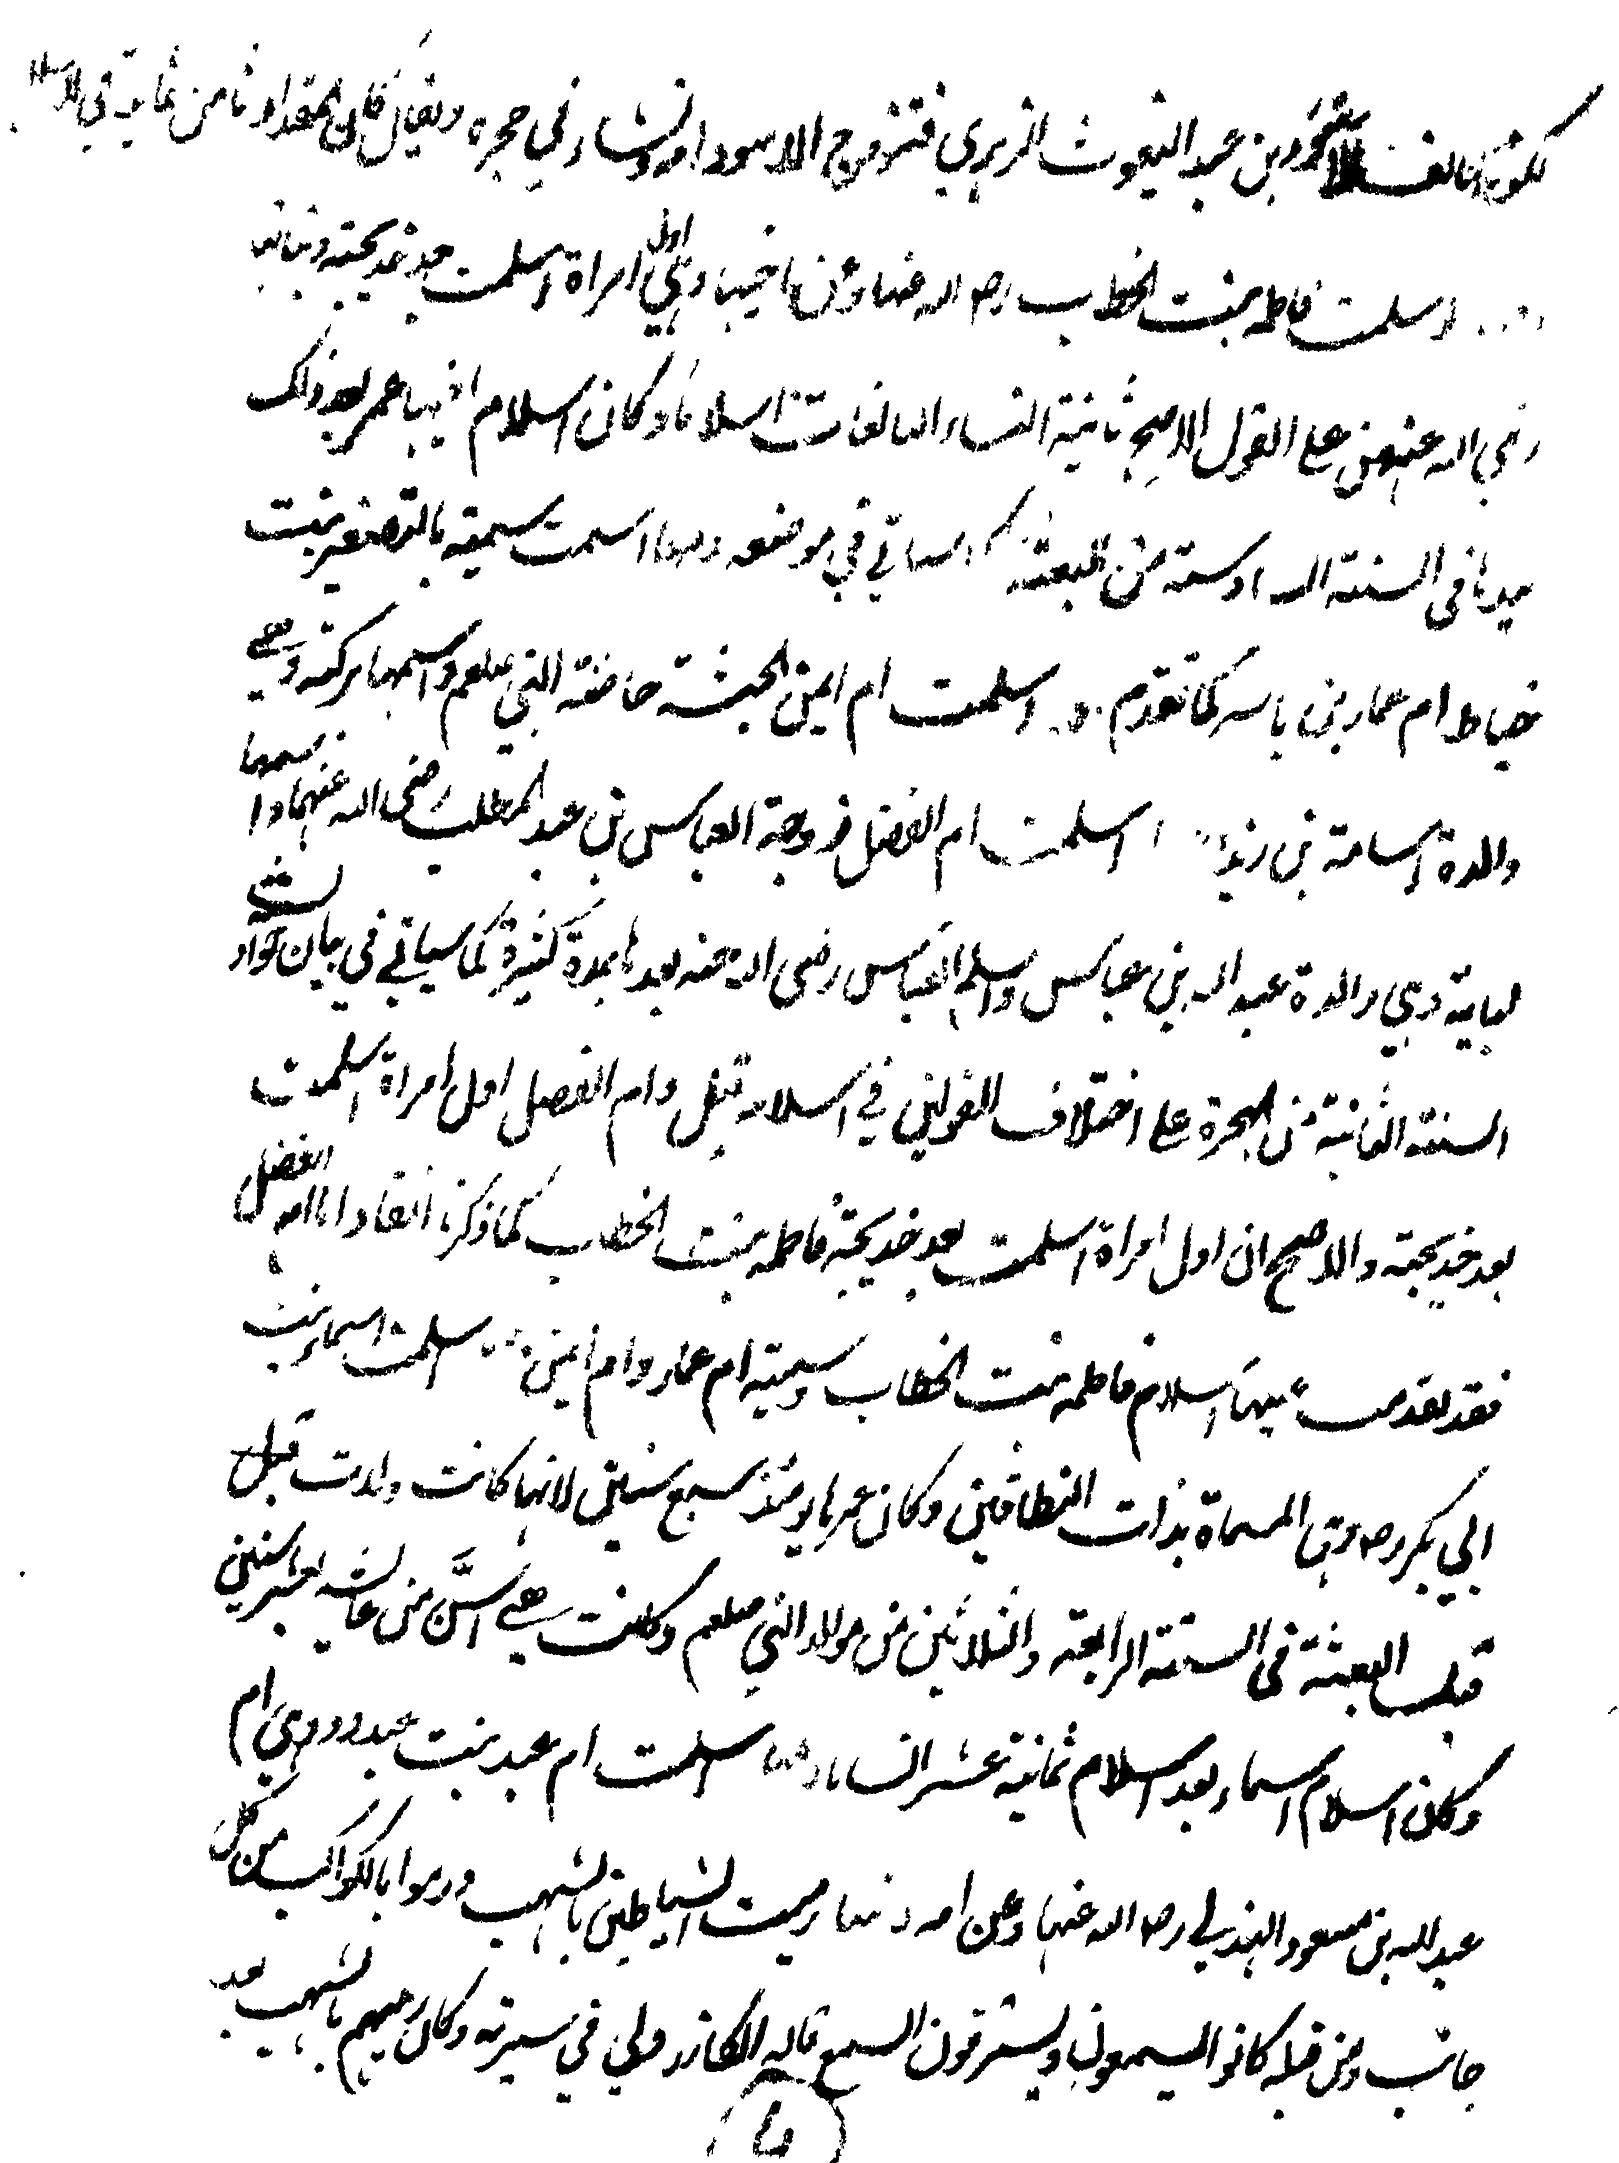 لكونه حالف الاسود بن عبد اليغوث الزهري فتزوج الاسود امه ونشاء في حجره ويقال كان المقداد ثامن ثمانية في الاسلام
اسلمت فاطمه بنت الخطاب رضـ الله عنها وعن اخيها وهي اول امراة اسلمت بعد خديجة وبناتها
رضي الله عنهن على القول الاصح ثانية النساء البالغات اسلاما وكان اسلام اخيها عمر بعد ذلك
في السنة السادسة من البعثة كما سياتي في موضعه وفيها اسلمت سمية بالتصغير بنت
خباط ام عمار بن ياسر كما تقدم و اسلمت ام ايمن الحبشة حاضنة النبي صلعم واسمها بركة وهي
والدة اسامة بن زيد اسلمت ام الفضل زوجة العباس بن عبد المطلب رضى الله عنهما واسمها
لبابة وهي والدة عبد الله بن عباس واسلم العباس رضى الله عنه بعدها بمدة كثيرة كما سياتي في بيان حوادث
السنة الثانية من الهجرة على اختلاف القولين في اسلامه قيل وام الفضل اول امراة اسلمت
بعد خديجة والاصح ان اول امراة اسلمت بعد خديجة فاطمه بنت الخطاب كما ذكرنا انفا واما ام الفضل
فقد تقدمت عليها اسلام فاطمه بنت الخطاب وسمية ام عمار وام ايمن اسلمت اسماء بنت
ابي بكر رضـ وهى المسماة بذات النطاقين وكان عمرها يومئذ سبع سنين لانها كانت ولدت قبل
قبل البعثة فى السنة الرابعة والثلاثين من مولد النبي صلعم وكانت هي اسن من عائشه بعشر سنين
وكان اسلام اسماء بعد اسلام ثمانية عشر انسانا وفيها اسلمت ام عبد بنت عبد ود وهي ام
عبد الله بن مسعود الهذلي رضـ الله عنها وعن امه وفيها رميت الشياطين بالشهب ورموا بالكواكب من كل
جانب ومن قبله كانوا يسمعون ويسترقون السمع قاله الكازروني في سيرته وكان رميهم بالشهب بعد